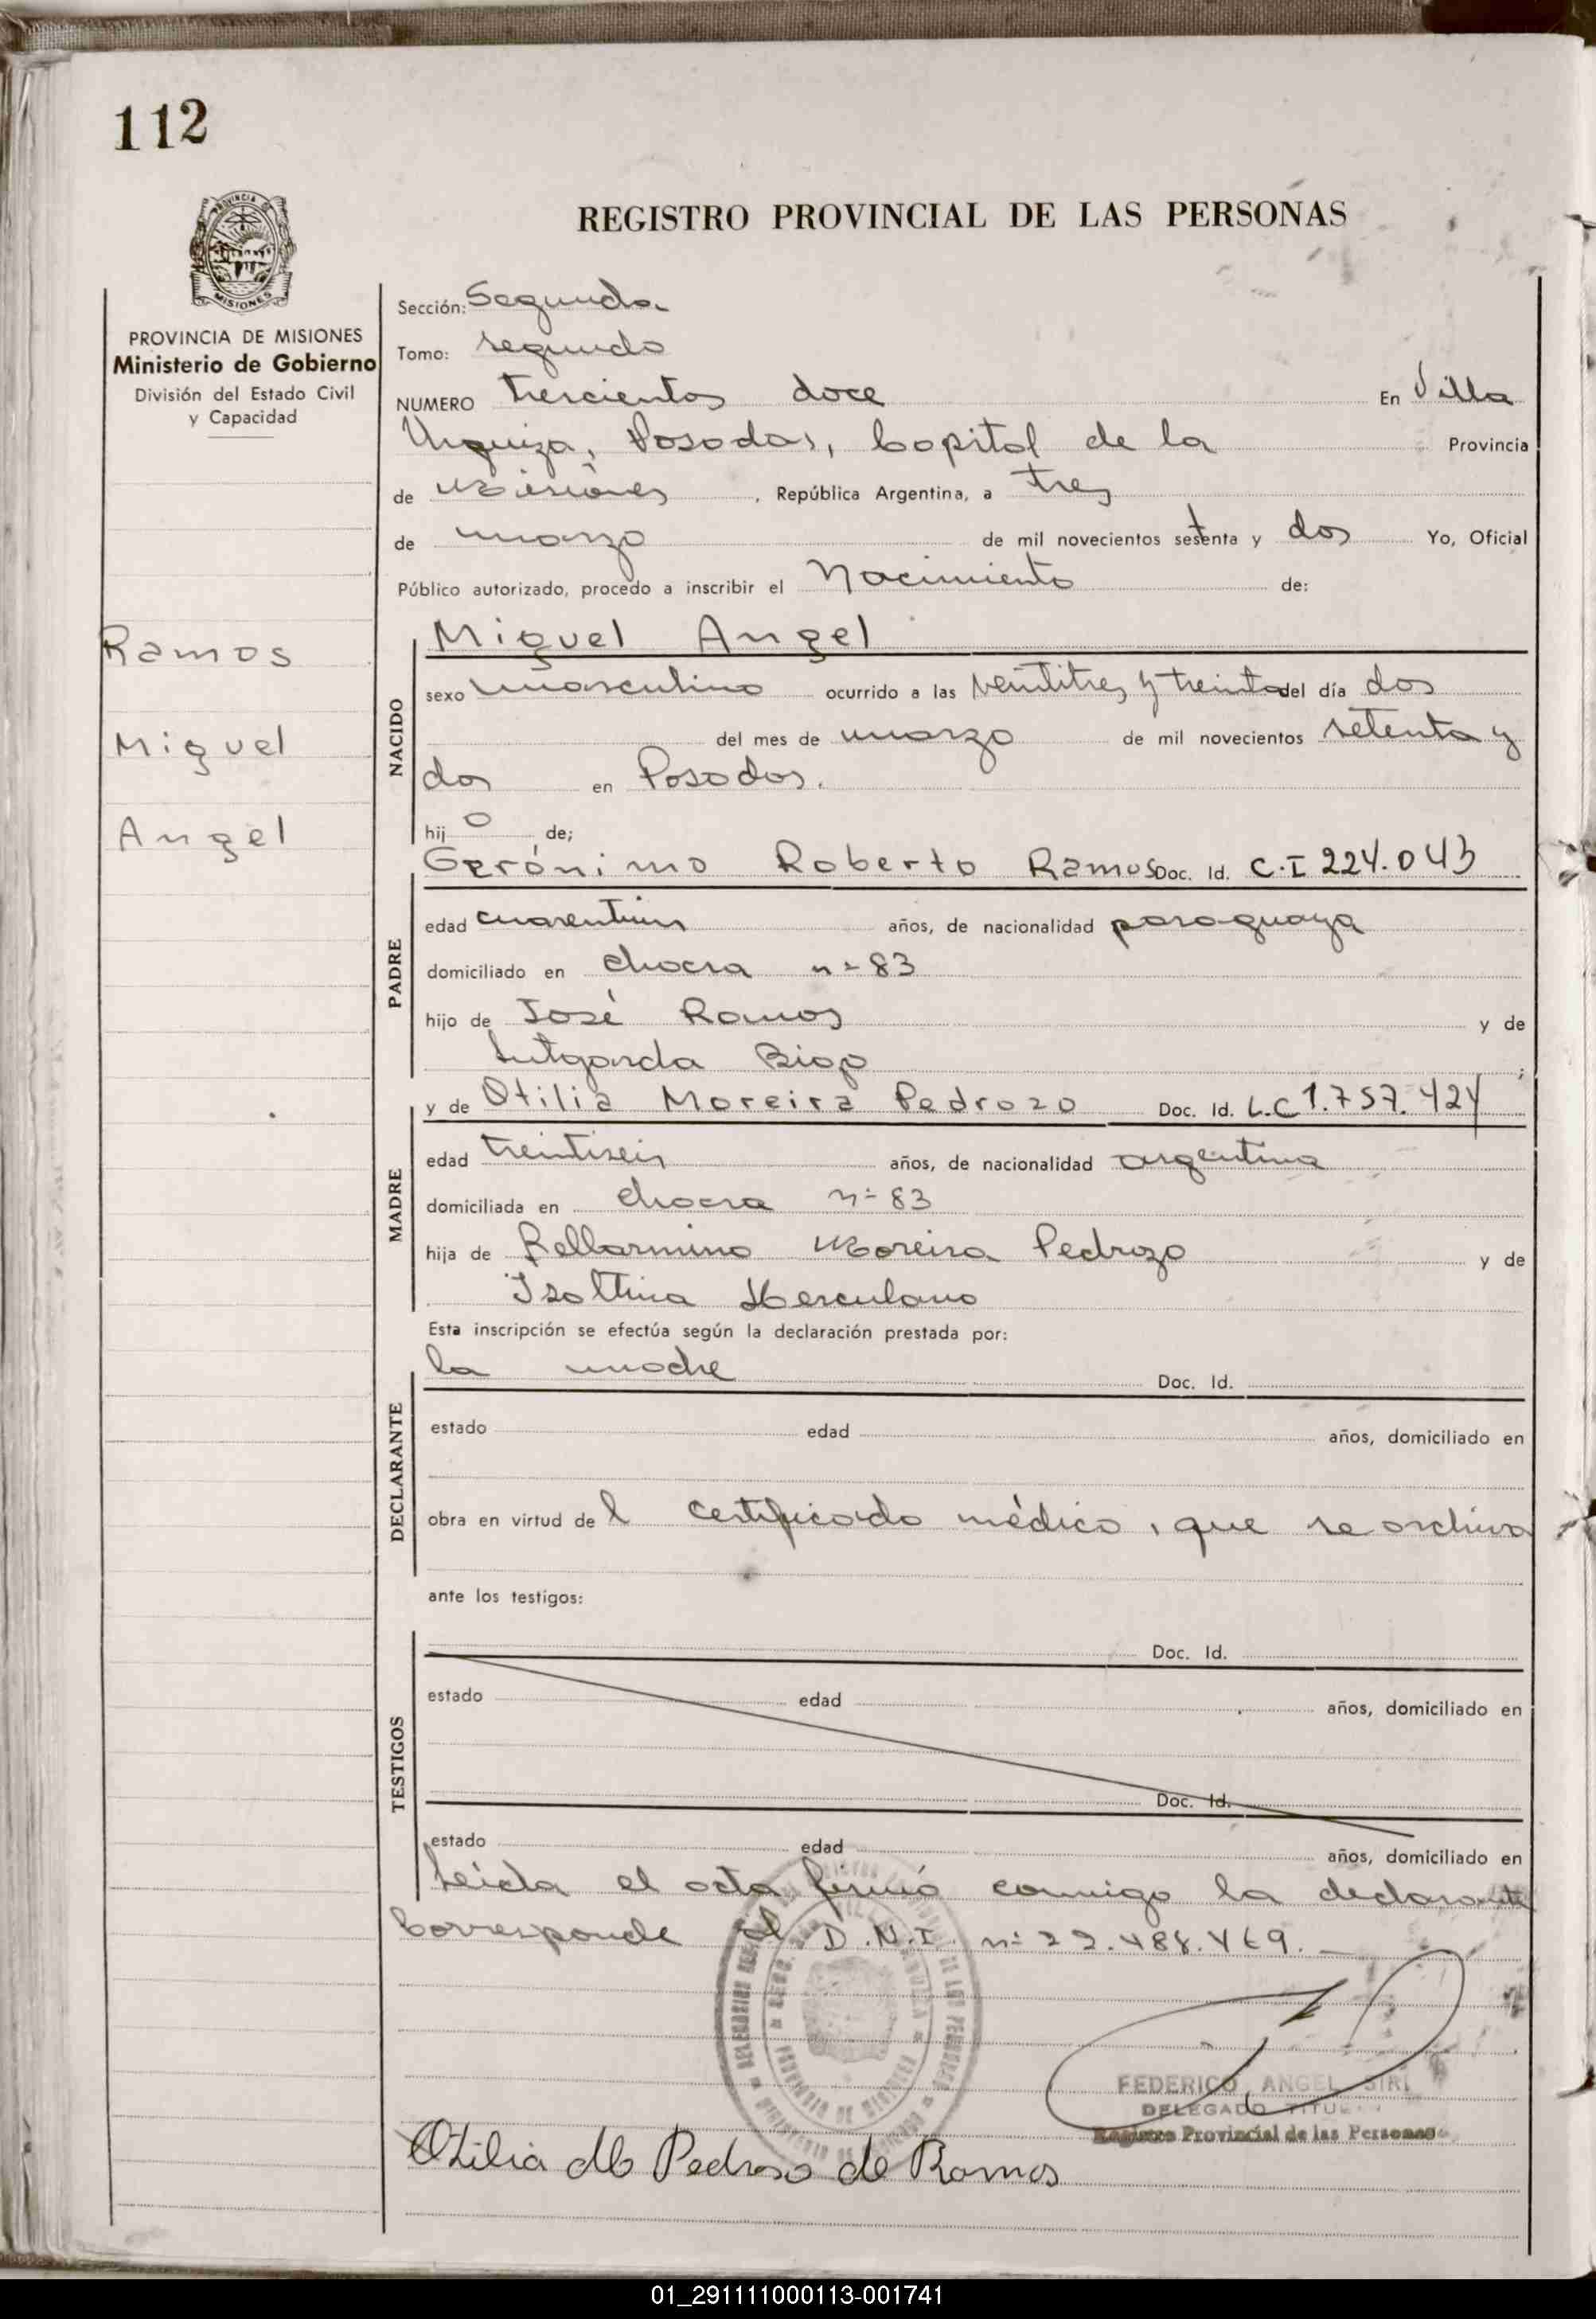 112
REGISTRO PROVINCIAL DE LAS PERSONAS
PROVINCIA DE MISIONES
Ministerio de Gobierno
División del Estado Civil
y Capacidad
Ramos
Miguel
Angel
Sección: Segunda
Tomo: segundo
NUMERO trescientos doce En Villa
Urquiza, Posadas, Capital de la Provincia
de Misiones, República Argentina, a tres
de marzo de mil novecientos setenta y dos Yo, Oficial
Público autorizado, procedo a inscribir el Nacimiento de:
NACIDO
Miguel Angel
sexo masculino ocurrido a las veintitres y treinta del día dos
del mes de marzo de mil novecientos setenta y
dos en Posadas.
hijo de;
PADRE
Gerónimo Roberto Ramos Doc. Id. C.I 224.043
edad cuarentiun años, de nacionalidad paraguaya
domiciliado en chacra n= 83
hijo de José Ramos y de
Lutgarda ;
MADRE
y de Otilia Moreira Pedrozo Doc. Id. L.C 1.757.424
edad treintiseis años, de nacionalidad argentina
domiciliada en chacra n= 83
hija de Bellarmino Moreira Pedrozo y de
Isoltina Herculano
Esta inscripción se efectúa según la declaración prestada por:
DECLARANTE
la madre Doc. Id.
estado edad años, domiciliado en
obra en virtud del certificado médico, que se archiva
ante los testigos:
TESTIGOS
Doc. Id.
estado edad años, domiciliado en
Doc. Id.
estado edad años, domiciliado en
Leida el acta firmó conmigo la declarante
Corresponde al D.N.I. n= 22.488.469.
FEDERICO ANGEL SIRI
DELEGADO TITULAR
Registro Provincial de las Personas
Otilia M Pedroso de Ramos
01_291111000113-001741